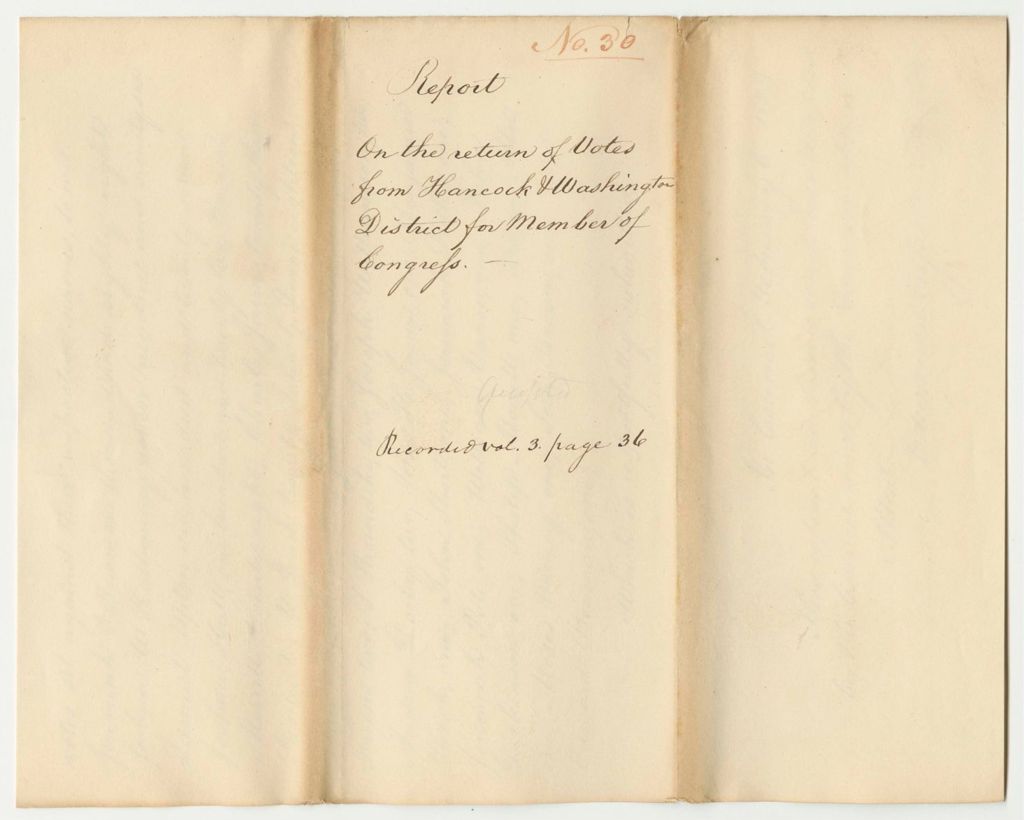 No. 36
Report
On the return of Votes
from Hancock & Washington
District for Member of
Congress. —
Recorded vol. 3. page 36